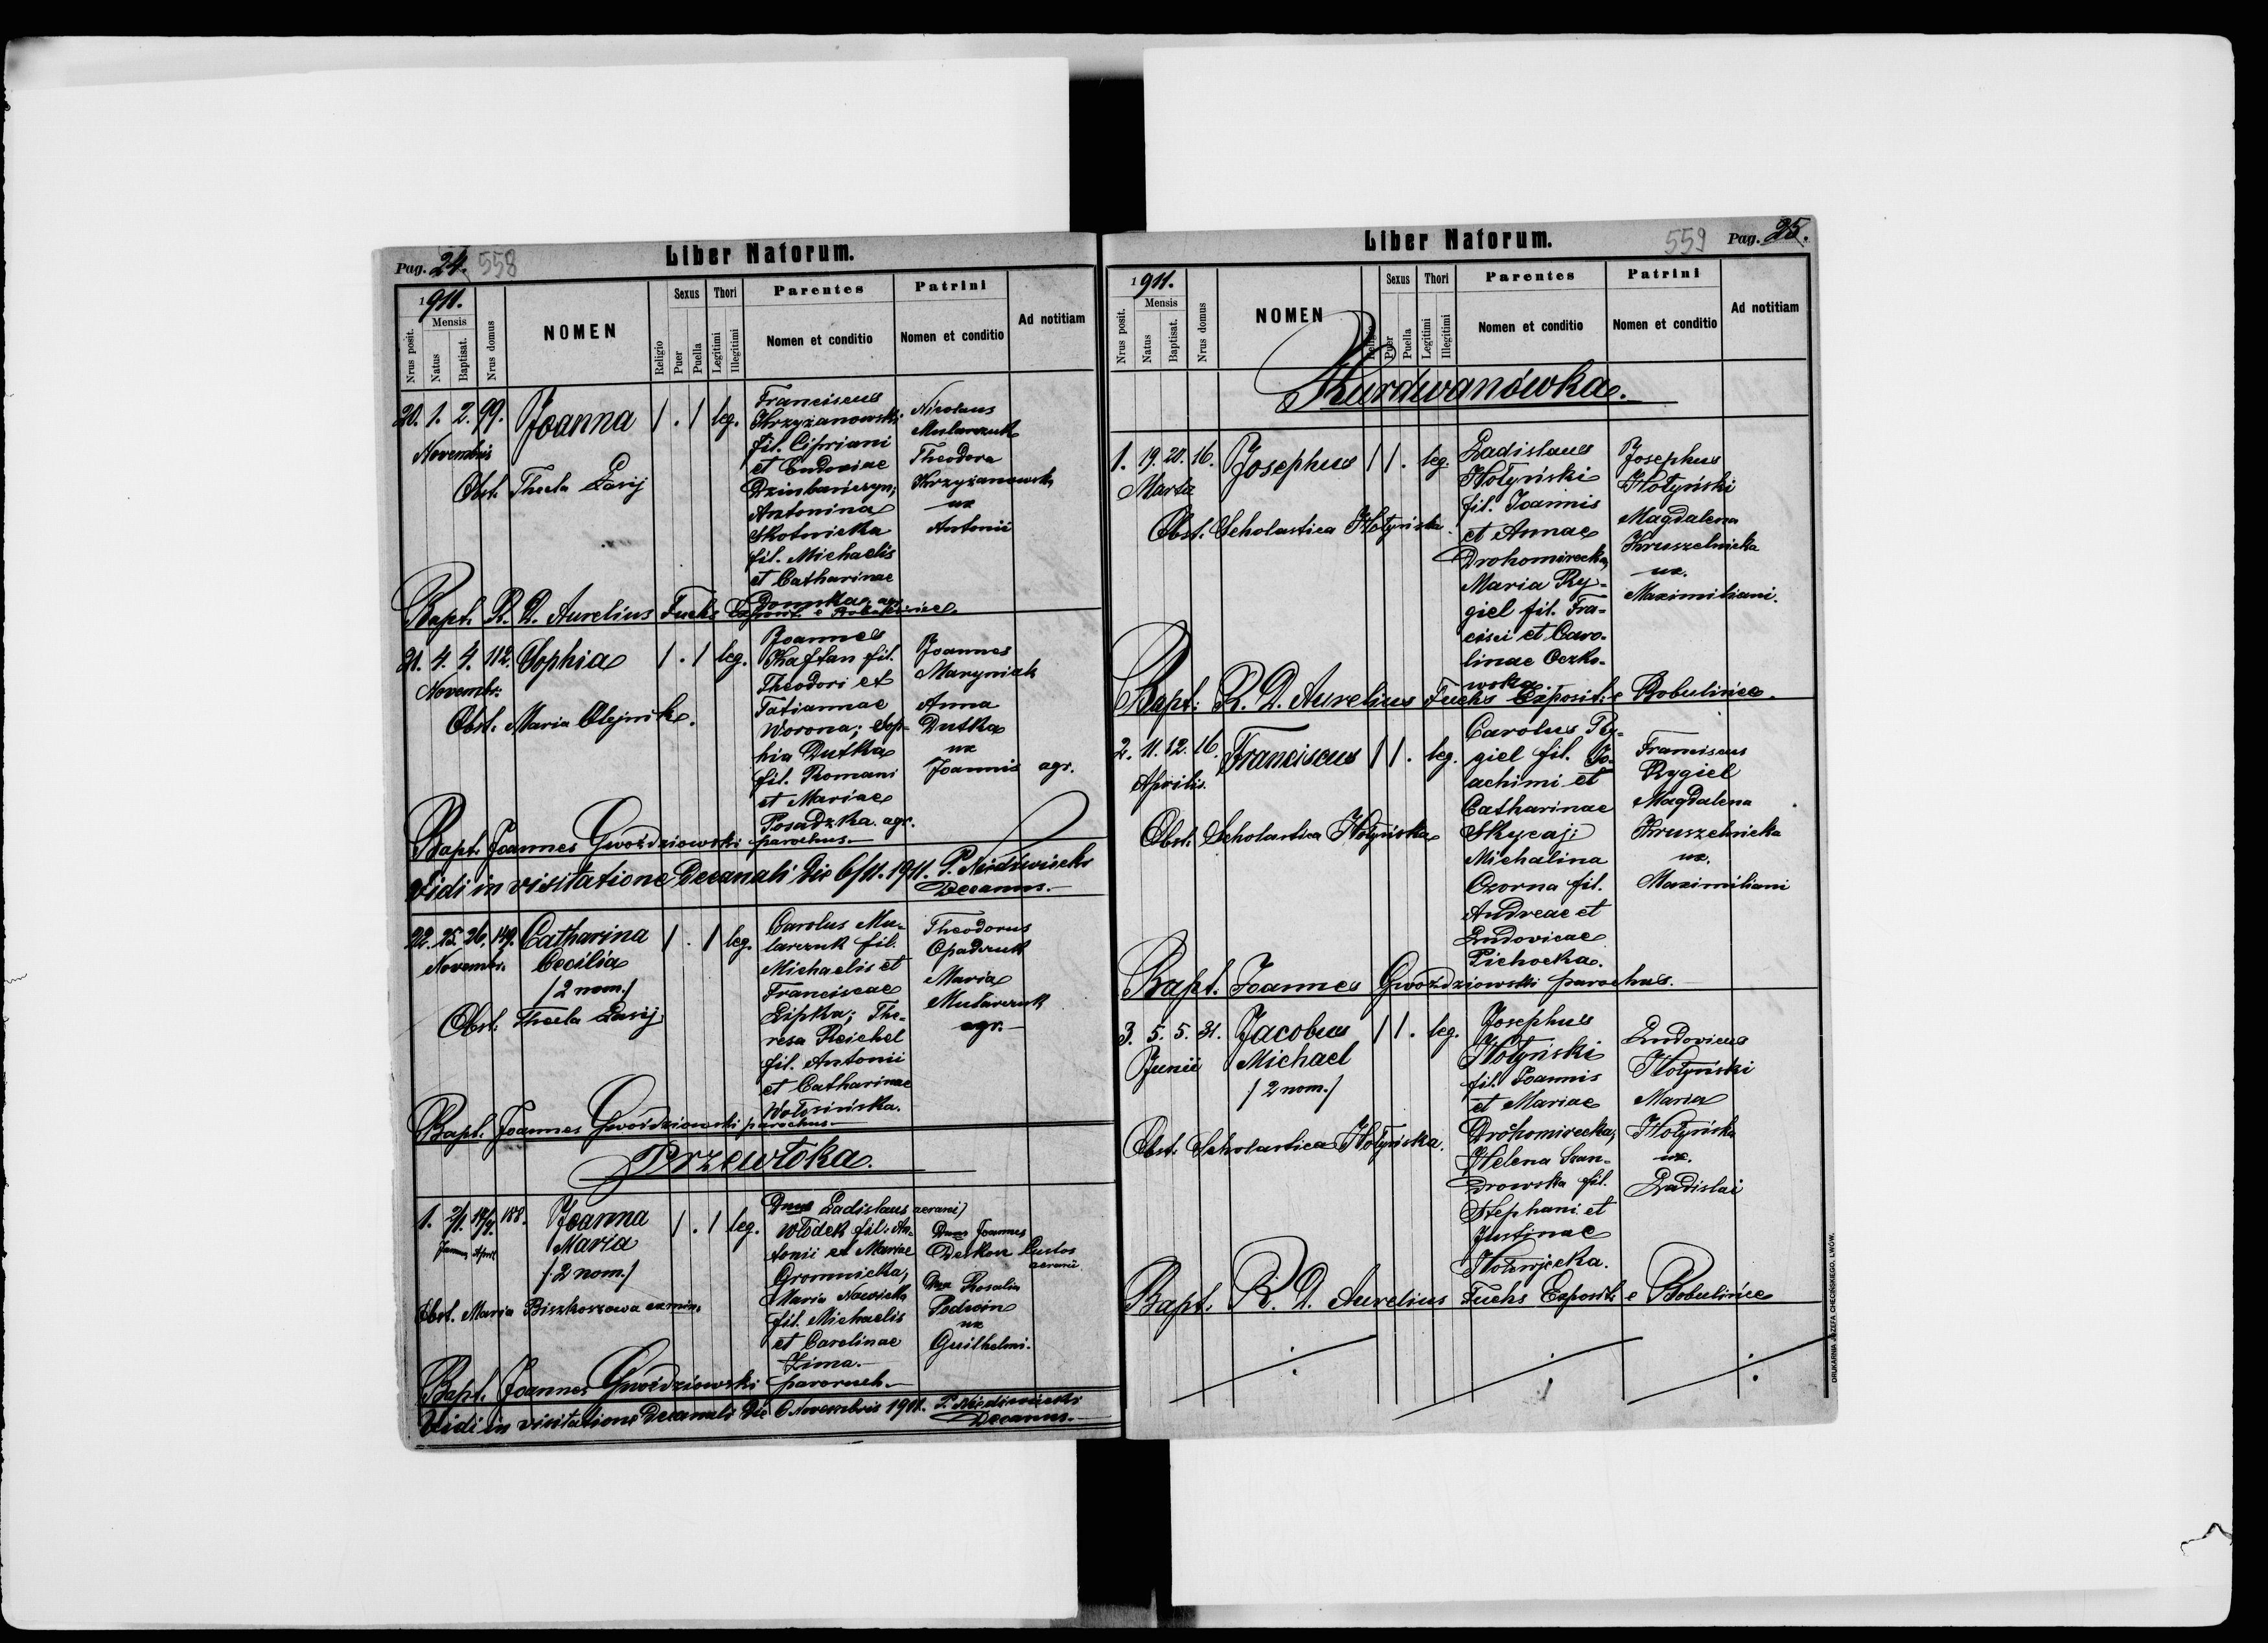 Pag. 24. 558
Liber Natorum.
1911.
Nrus posit.
Mensis
Natus
Baptisat.
Nrus domus
NOMEN
Religio
Sexus
Puer
Puella
Thori
Legitimi
Illegitimi
Parentes
Nomen et conditio
Patrini
Nomen et conditio
Ad notitiam
20. 1. 2. 99. Joanna 1 . 1 leg.
Novembris
Obst. Thecla Lasij
Franciscus
Krzyżanowski
fil. Cipriani
et Eudoxiae
Antonina
Skotnicka
fil. Michaelis
et Catharinae
Nicolaus
Mularczuk
Theodora
Krzyżanowska
ux
Antonii
Bapt. R. D. Aurelius Fuchs Exposit. e Bobulińce.
21. 4. 4. 112. Sophia 1 . 1 leg.
Novembr.
Obst. Maria Olejnik.
Joannes
Kaftan fil.
Theodori et
Tatiannae
Worona; Sop-
hia Dutka
fil. Romani
et Mariae
Posadzka. agr.
Joannes
Maryniak
Anna
Dutka
ux
Joannis agr.
Bapt. Joannes Gwoździowski parochus.
Vidi in visitatione Decanali die 6/11. 1911. P. Niedźwiecki
Decanus.
22. 25. 26. 149. Catharina 1 . 1 leg.
Novembr. Cecilia
/2 nom./
Obst. Thecla Lasij
Carolus Mu-
larczuk fil.
Michaelis et
Franciscae
Lipka; The-
resa Reichel
fil. Antonii
et Catharinae
Wołosińska.
Theodorus
Opadczuk
Maria
Mularczuk
agr.
Bapt. Joannes Gwoździowski parochus
Przewłoka.
1. 2/1. 17/4 188. Joanna 1 . 1 leg.
Maria
/2 nom./
Obst. Maria Biszkoszowa exmin.
Dnus Ladislaus
Włodek fil. An-
tonii et Mariae
Gromnicka;
Maria Nowicka
fil. Michaelis
et Carolinae
Zima.
Dnus Joannes
Custos
aerarii
Dna Rosalia
Podwin
ux
Guilhelmi.
Bapt. Joannes Gwoździowski
Vidi in visitatione Decanali die 6 Novembris 1911. P. Niedźwiecki
Decanus.
Liber Natorum.
559 Pag. 25.
1911.
Nrus posit.
Mensis
Natus
Baptisat.
Nrus domus
NOMEN
Religio
Sexus
Puer
Puella
Thori
Legitimi
Illegitimi
Parentes
Nomen et conditio
Patrini
Nomen et conditio
Ad notitiam
Kurdwanówka.
1. 19. 20. 16. Josephus 1 1 . leg.
Marta
Obst. Scholastica Hołyńska
Ladislaus
Hołyński
fil. Joannis
et Annae
Drohomirecka,
Maria Ry-
giel fil. Fra-
cisci et Caro-
linae Oczko-
wska
Josephus
Hołyński
Magdalena
Kruszelnicka
ux.
Maximiliani.
Bapt. R. D. Aurelius Fuchs Exposit. e Bobulińce.
2. 11. 12. 16. Franciscus 1 1 . leg.
Aprilis.
Obst. Scholastica Hołyńska
Carolus Ry-
giel fil. Jo-
achimi et
Catharinae
Skycaj;
Michalina
Czorna fil.
Andreae et
Ludovicae
Pichocka.
Franciscus
Rygiel
Magdalena
Kruszelnicka
ux.
Maximiliani
Bapt. Joannes Gwoździowski parochus.
3. 5. 5. 31. Jacobus 1 1 . leg.
Junii Michael
/2 nom./
Obst. Scholastica Hołyńska.
Josephus
Hołyński
fil. Joannis
et Mariae
Drohomirecka;
Helena Szan-
drowska fil.
Stephani et
Justinae
Ludovicus
Hołyński
Maria
Hołyńska
ux.
Ladislai
Bapt. R. D. Aurelius Fuchs Exposit. e Bobulińce
DRUKARNIA JÓZEFA CHĘCIŃSKIEGO, LWÓW.